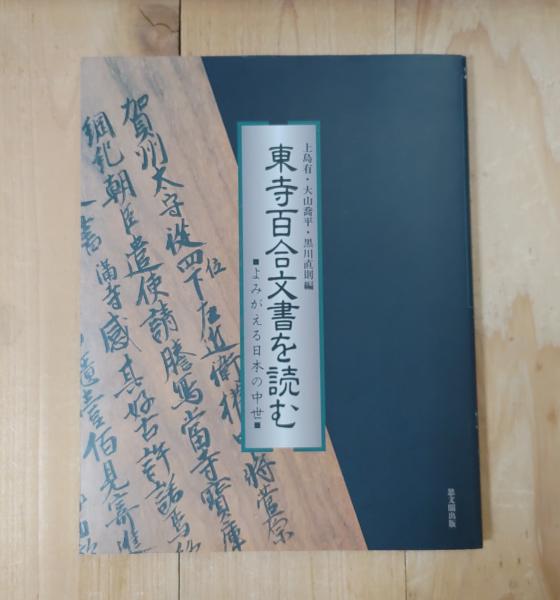 上島有・大山喬平・黒川直則編
東寺百合文書を読む
■よみがえる日本の中世■
賀州太守從四位下左近衛権中将菅原
綱紀朝臣遣使請謄寫當寺寶庫
一書満寺感其好古許諾焉
遺壹佰見寄進
思文閣出版